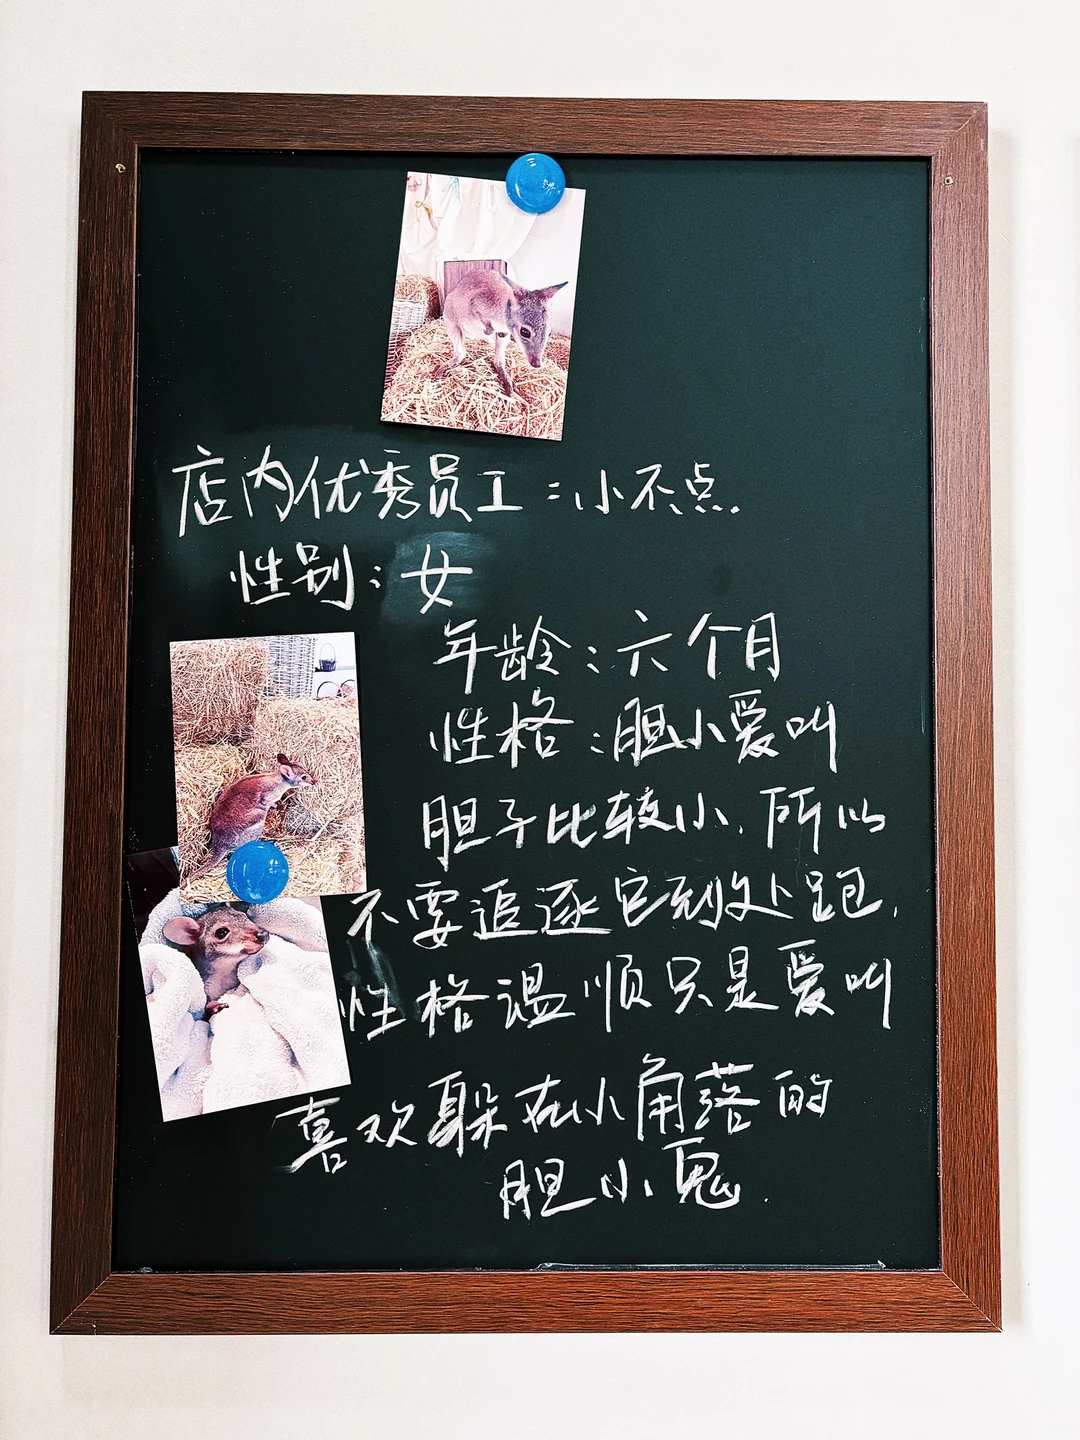 店内优秀员工：小不点.
性别：女
年龄：六个月
性格：胆小爱叫
胆子比较小.所以
不要追逐它到处跑.
性格温顺只是爱叫
喜欢躲在小角落的
胆小鬼.